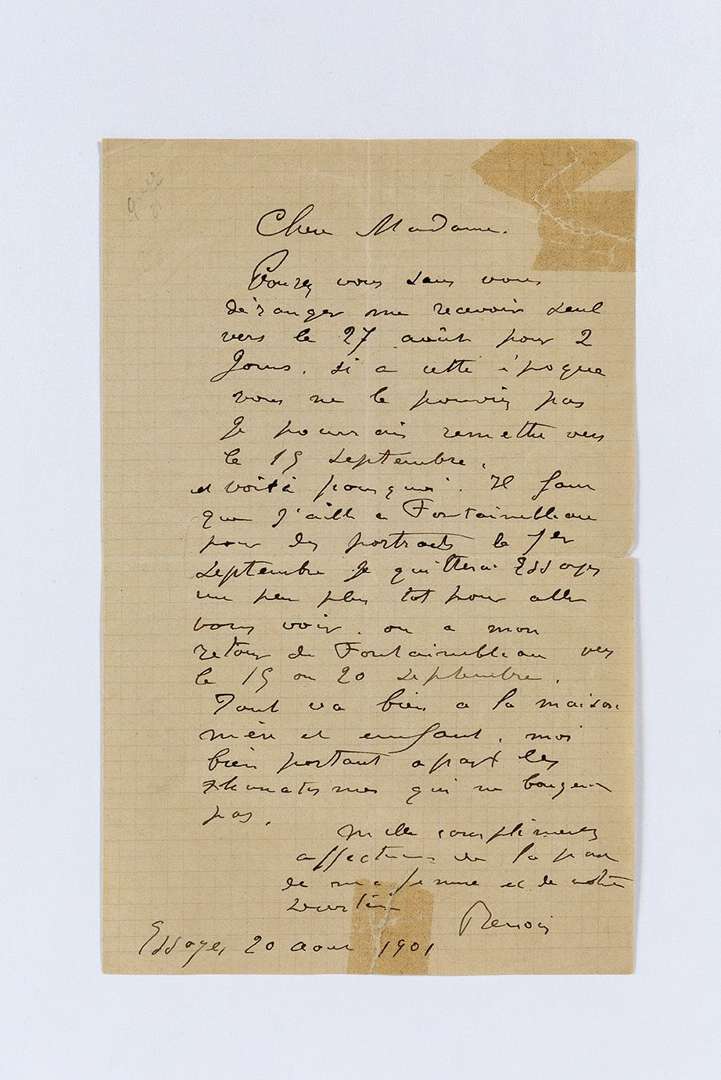 Chere Madame.
Pouvez vous sans vous
déranger me recevoir seul
vers le 27 août pour 2
Jours. si a cette époque
vous ne le pouviez pas
Je pourrais remettre vers
le 15 septembre.
et voilà pourquoi. Il faut
que J'aille a Fontainebleau
pour des portraits le 1er
septembre je quitterai Essoyes
un peu plus tot pour aller
vous voir. ou a mon
retour de Fontainebleau vers
le 15 ou 20 septembre.
Tout va bien a la maison
mère et enfant, moi
bien portant apart les
rhumatismes qui ne bougent
pas.
Mille compliments
affectueux de la part
de ma femme et de votre
Renoir
Essoyes 20 aout 1901